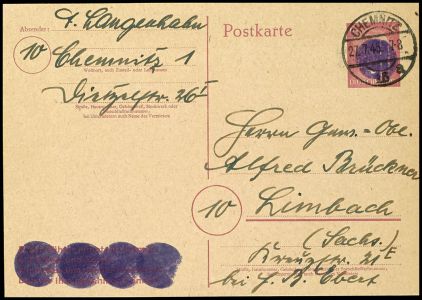 Absender:
F. Langenhahn
10 Chemnitz 1
Wohnort, auch Zustell- oder Leitpostamt
Dietzelstr. 26 I
Straße, Hausnummer, Gebäudeteil, Stockwerk oder
Postschließfachnummer;
bei Untermietern auch Name des Vermieters
Postkarte
CHEMNITZ
7-8
Herrn
Alfred Brückner
10 Limbach
(Sachs.)
Kreuzstr. 21 E
bei J. B. Ebert